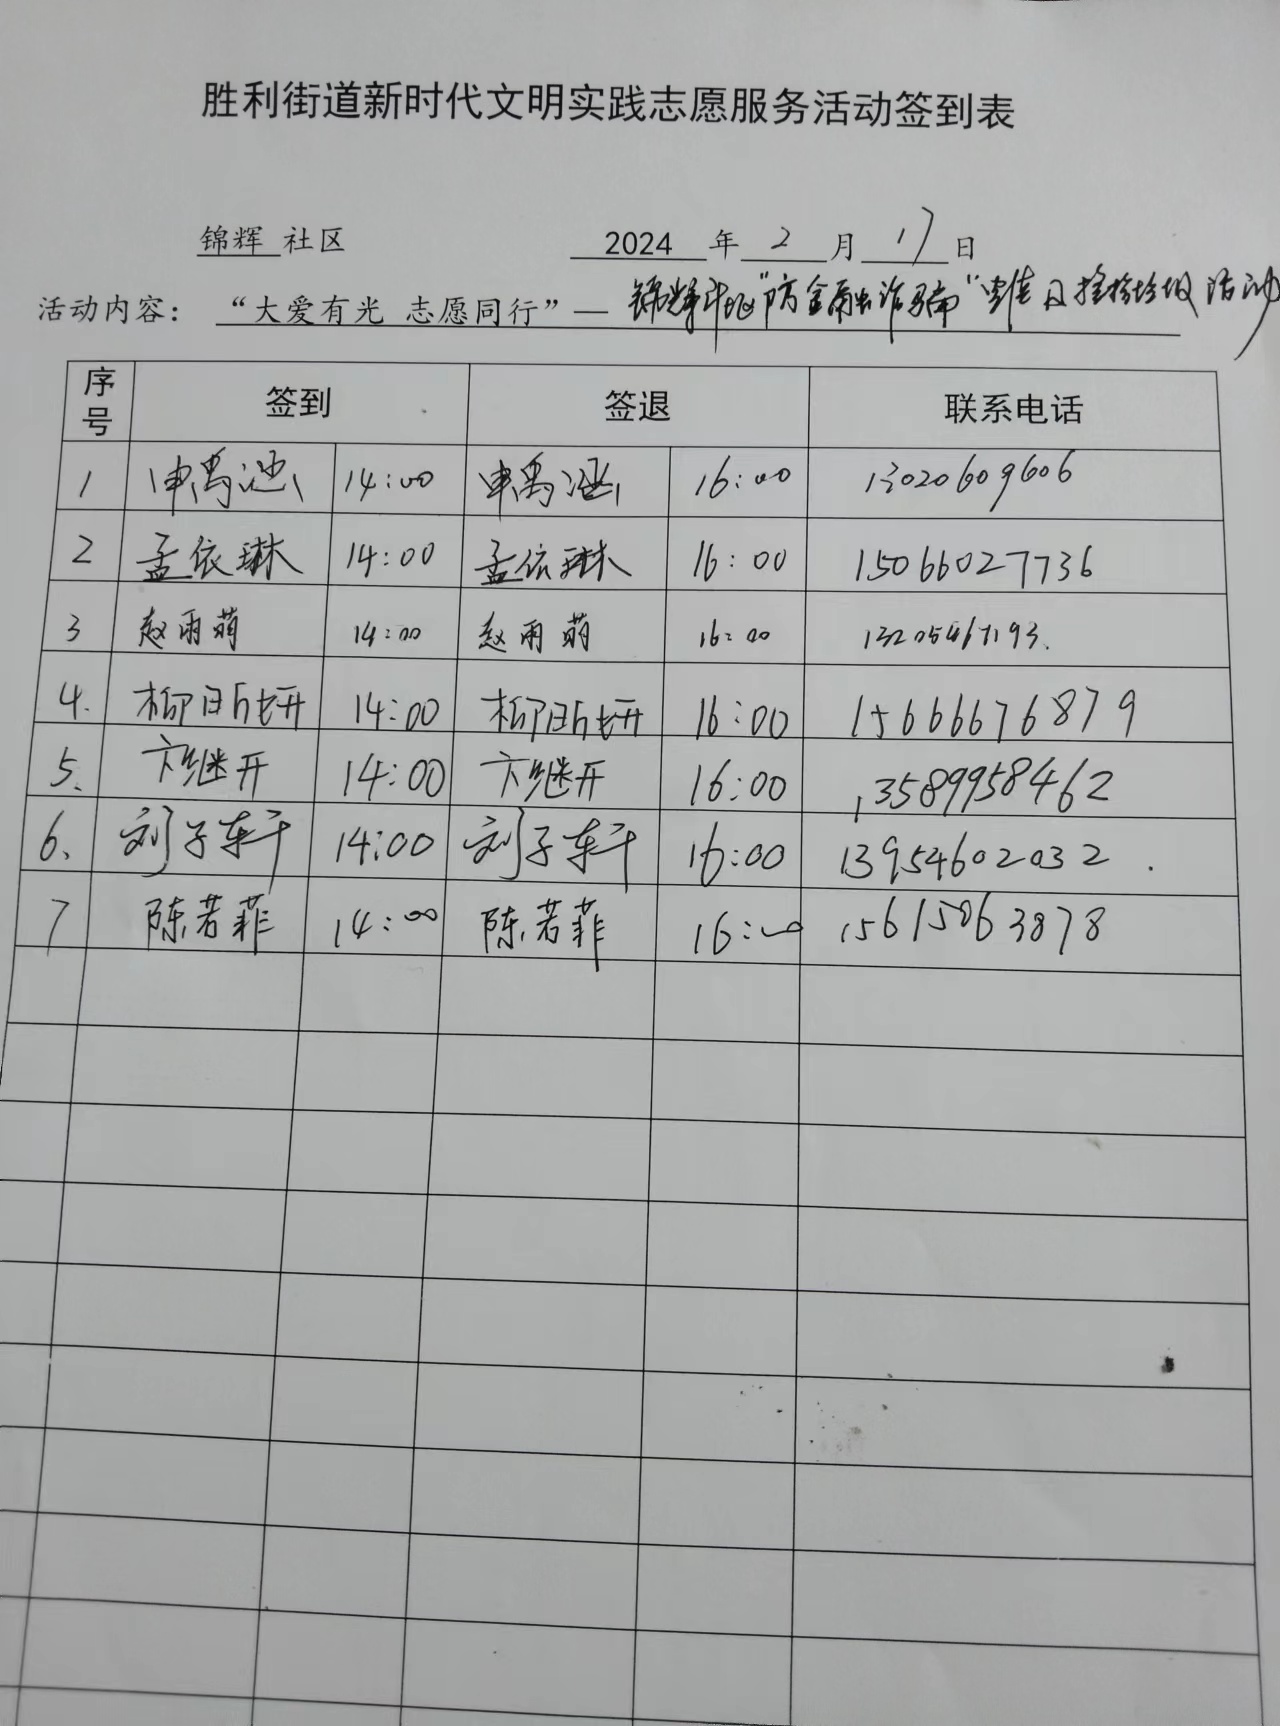 胜利街道新时代文明实践志愿服务活动签到表
锦辉 社区 2024 年 2 月 17 日
活动内容： “大爱有光 志愿同行”— 锦辉社区“防金融诈骗”宣传及捡拾垃圾活动
序号 签到 签退 联系电话
1 申禹涵 14:00 申禹涵 16:00 13020609606
2 孟依琳 14:00 孟依琳 16:00 15066027736
3 赵雨萌 14:00 赵雨萌 16:00
4. 柳昕妍 14:00 柳昕妍 16:00 15666676879
5. 卞继开 14:00 卞继开 16:00 13589958462
6. 刘子轩 14:00 刘子轩 16:00 13954602032.
7 陈若菲 14:00 陈若菲 16:00 15615063878